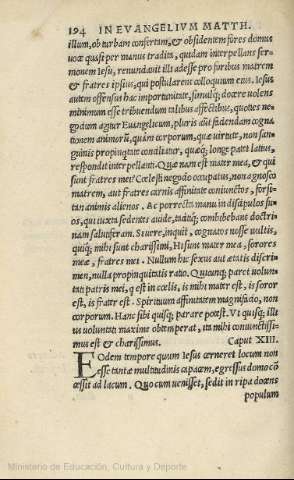 194 IN EVANGELIVM MATTH.
illum, ob turbam consertam, & obsidentem fores domus
uocæ quasi per manus tradita, quidam interpellans ser-
monem Iesu, renunciauit illi adesse pro foribus matrem
& fratres ipsius, qui postularent colloquium eius. Iesus
autem offensus hac importunitate, simulq́; docere uolens
minimum esse tribuendum talibus affectibus, quoties ne-
gocium agitur Euangelicum, pluris aũt faciendam cogna-
tionem animorũ, quàm corporum, quæ uirtute, non san-
guinis propinquitate conciliatur, quæq́; longe patet latius,
respondit interpellanti: Quæ nam est mater mea, & qui
sunt fratres mei? Cœlesti negocio occupatus, non agnosco
matrem, aut fratres carnis affinitate coniunctos, forsi-
tan animis alienos. Ac porrecta manu in discipulos su-
os, qui iuxta sedentes auide, taciteq́; combibebant doctri-
nam salutiferam. Si uere, inquit, cognatos nosse uultis,
quiq́; mihi sunt charissimi, Hi sunt mater mea, sorores
meæ, fratres mei. Nullum huc sexus aut ætatis discri-
men, nulla propinquitatis ratio. Quicunq; paret uolun-
tati patris mei, q est in cœlis, is mihi mater est, is soror
est, is frater est. Spirituum affinitatem magnifacio, non
corporum. Hanc sibi quisq́; parare potest. Vt quisq́; illi
us uoluntati maxime obtemperat, ita mihi coniunctissi-
mus est & charissimus. Caput XIII.
EOdem tempore quum Iesus cerneret locum non
esse tantæ multitudinis capacem, egressus domo cõ
cessit ad lacum. Quo cum uenisset, sedit in ripa docens
populum
Ministerio de Educación, Cultura y Deporte